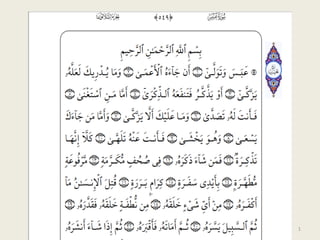 ﴿٥٤٩﴾
بِسْمِ ٱللَّهِ ٱلرَّحْمَٰنِ ٱلرَّحِيمِ
عَبَسَ وَتَوَلَّىٰٓ أَن جَآءَهُ ٱلْأَعْمَىٰ وَمَا يُدْرِيكَ لَعَلَّهُۥ
يَزَّكَّىٰٓ أَوْ يَذَّكَّرُ فَتَنفَعَهُ ٱلذِّكْرَىٰٓ أَمَّا مَنِ ٱسْتَغْنَىٰ
فَأَنتَ لَهُۥ تَصَدَّىٰ وَمَا عَلَيْكَ أَلَّا يَزَّكَّىٰ وَأَمَّا مَن جَآءَكَ
يَسْعَىٰ وَهُوَ يَخْشَىٰ فَأَنتَ عَنْهُ تَلَهَّىٰ كَلَّآ إِنَّهَا
تَذْكِرَةٌ فَمَن شَآءَ ذَكَرَهُۥ فِى صُحُفٍ مُّكَرَّمَةٍ مَّرْفُوعَةٍ
مُّطَهَّرَةٍۭ بِأَيْدِى سَفَرَةٍ كِرَامٍۭ بَرَرَةٍ قُتِلَ ٱلْإِنسَٰنُ مَآ
أَكْفَرَهُۥ مِنْ أَىِّ شَىْءٍ خَلَقَهُۥ مِن نُّطْفَةٍ خَلَقَهُۥ فَقَدَّرَهُۥ
ثُمَّ ٱلسَّبِيلَ يَسَّرَهُۥ ثُمَّ أَمَاتَهُۥ فَأَقْبَرَهُۥ ثُمَّ إِذَا شَآءَ أَنشَرَهُۥ
1